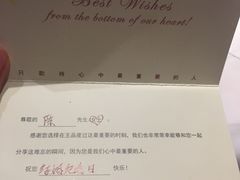 Best Wishes
from the bottom of our heart!
只 款 待 心 中 最 重 要 的 人
尊敬的 陈 先生
感谢您选择在王品度过这最重要的时刻，我们也非常荣幸能够和您一起
分享这难忘的瞬间，因为您是我们心中最重要的人。
祝您 结婚纪念日 快乐！